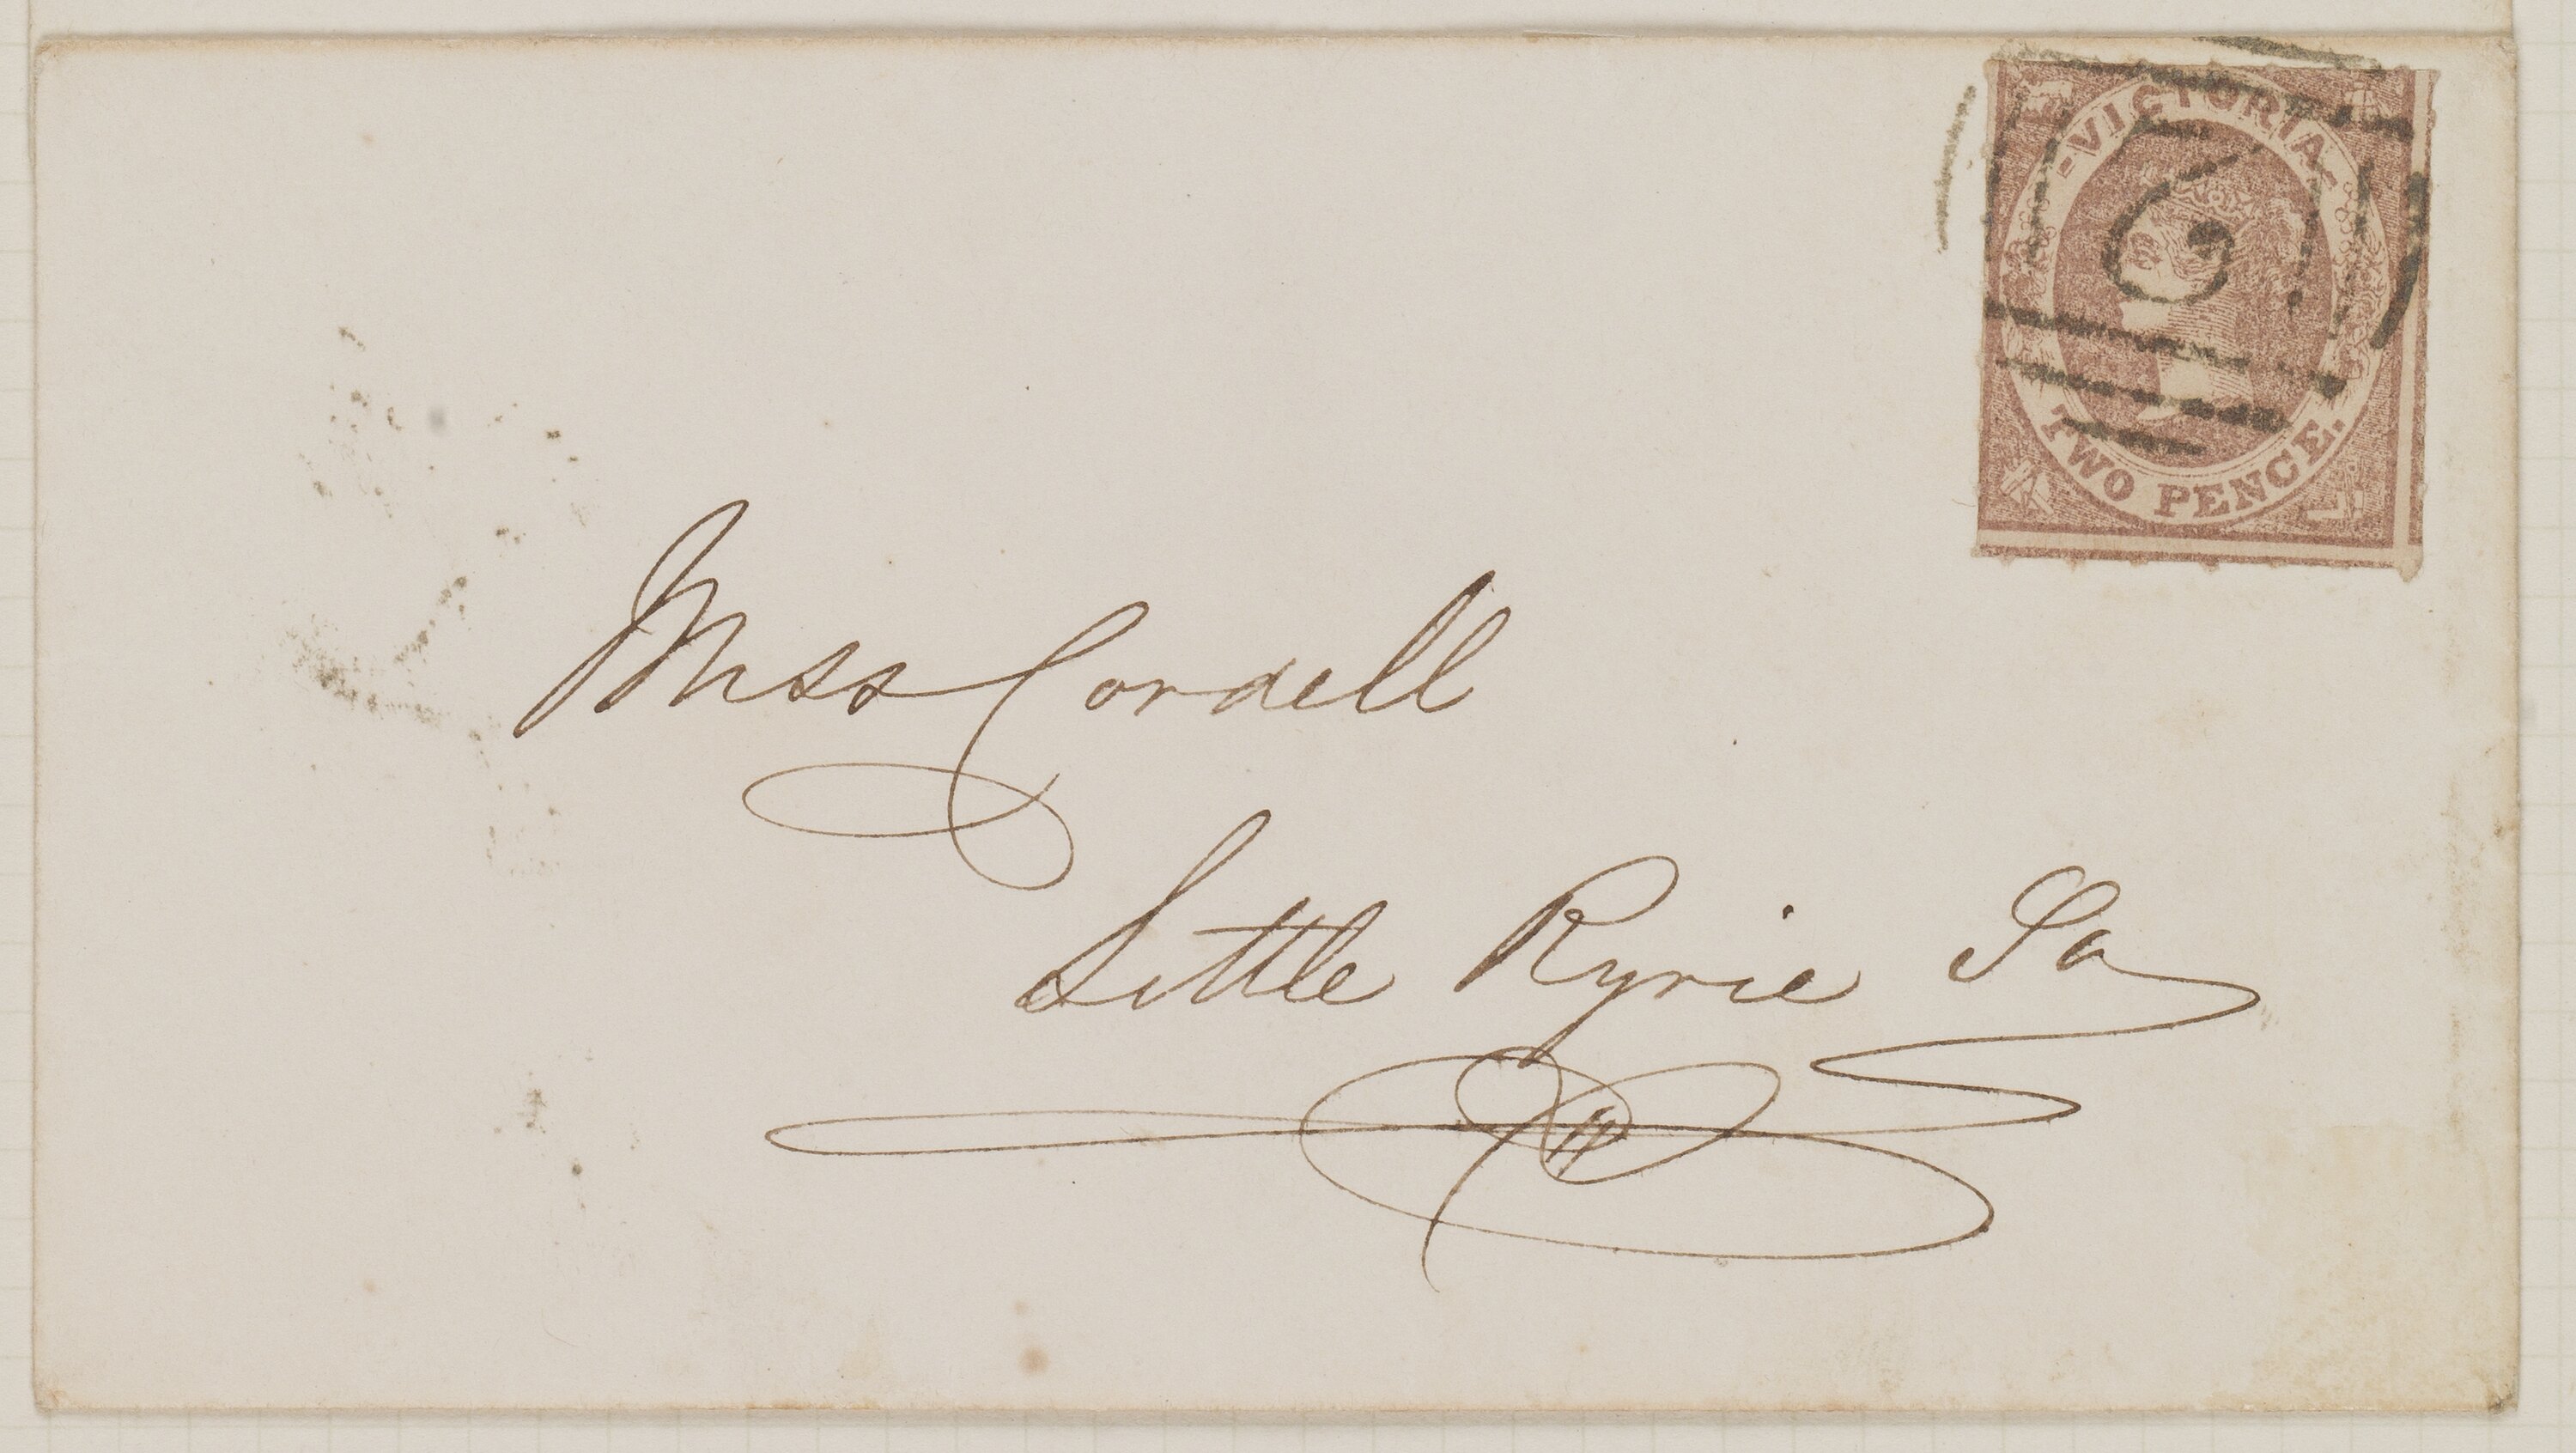 VICTORIA
TWO PENCE.
Miss Cordell
Little Ryrie St